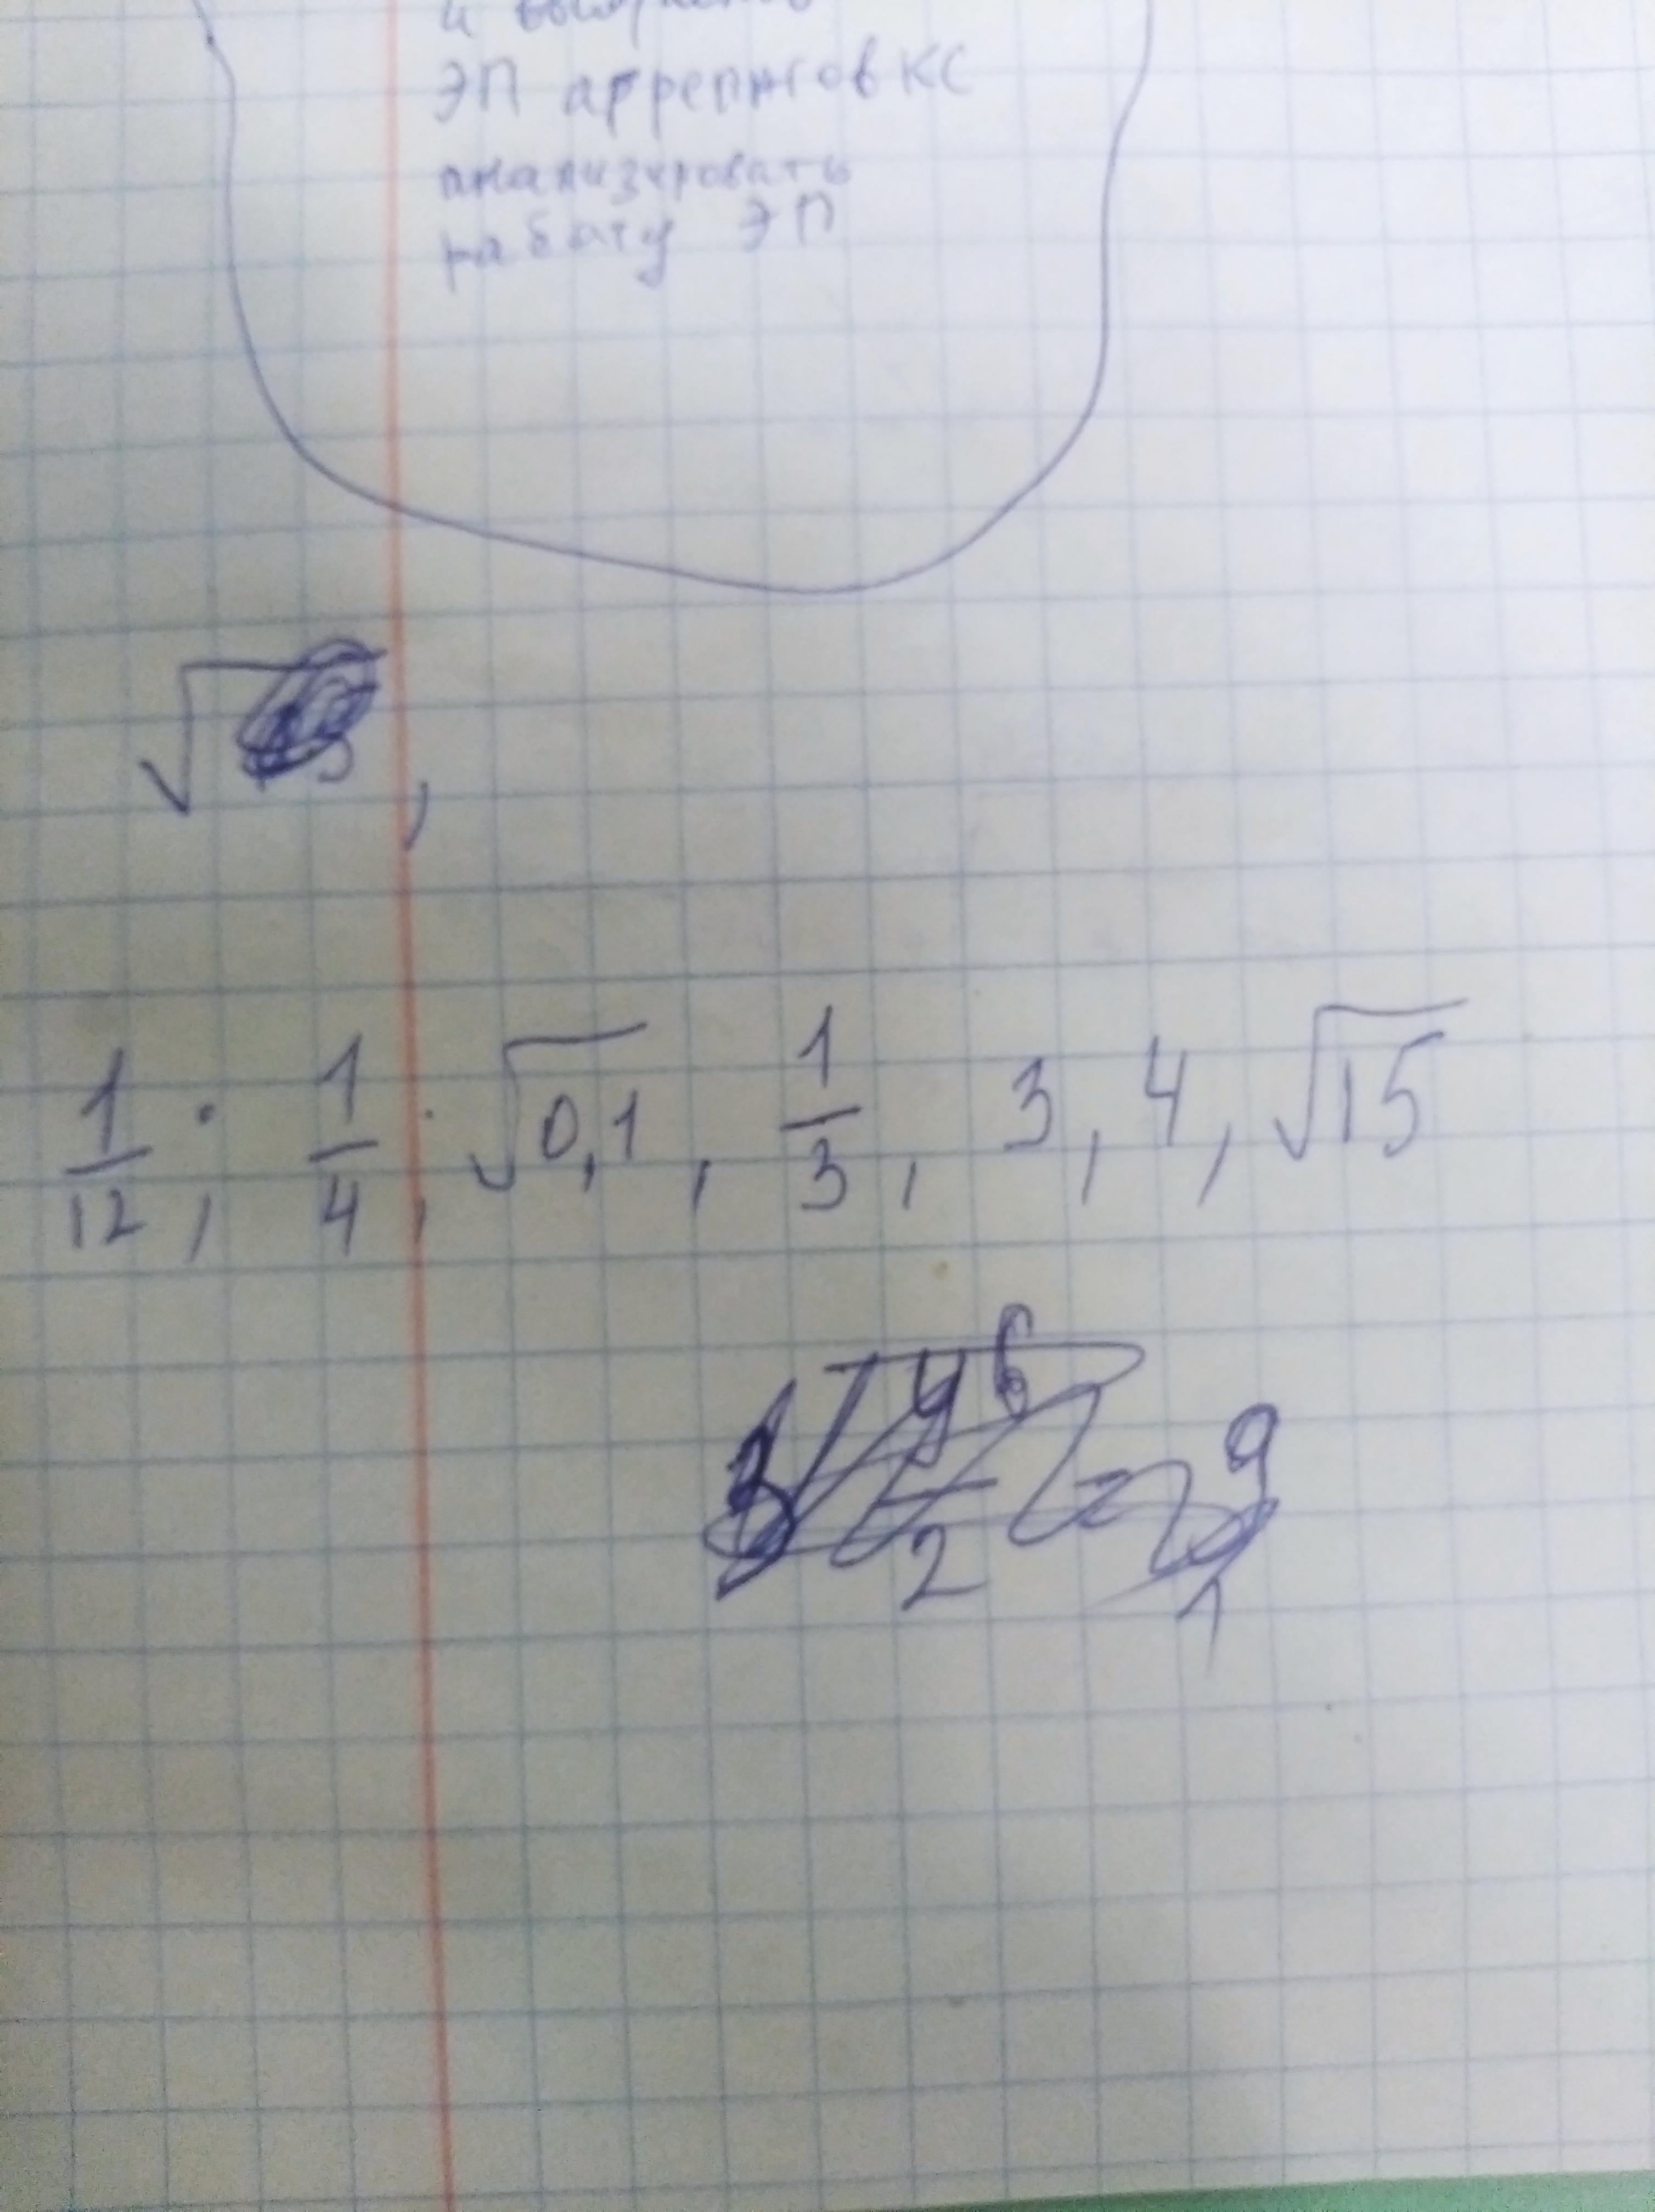 ЭП агрегатов КС
анализировать
работу ЭП
√ ,
1/12; 1/4; √0,1, 1/3, 3, 4, √15